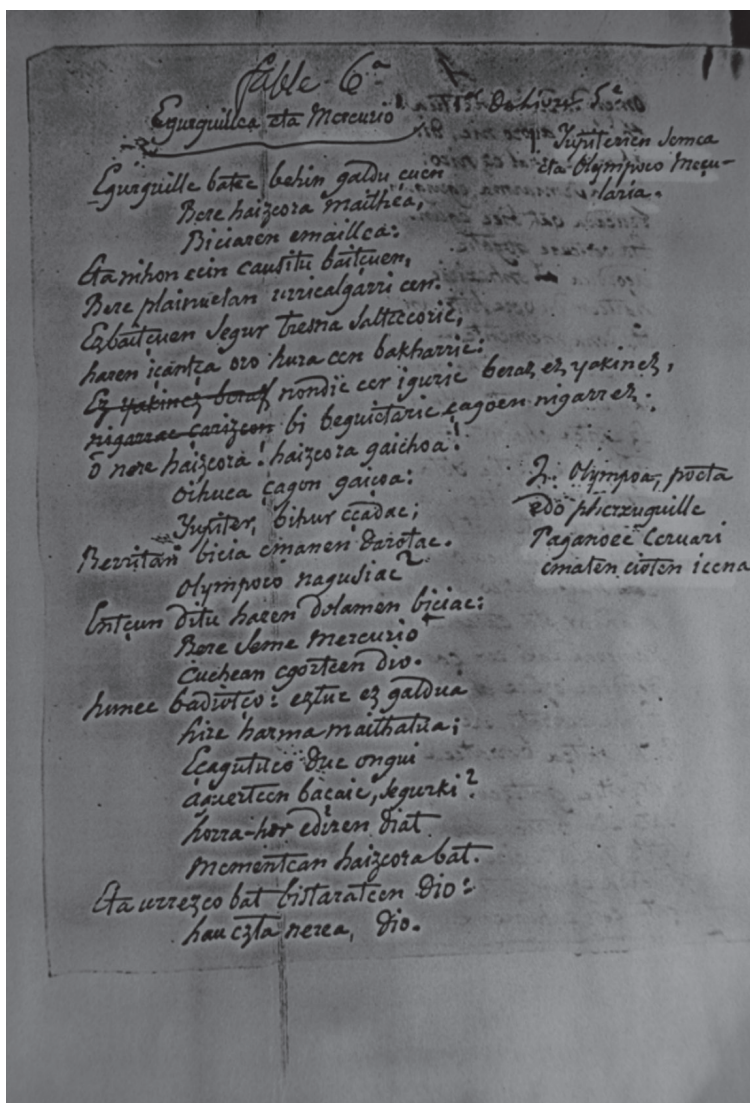 fable 6.a
Egurguillea eta Mercurio 1
Egurguille batec behin galdu çuen
Bere haizcora maithea,
Biciaren emaillea:
Eta nihon ecin causitu baitçuen,
Bere plainuetan urricalgarri cen.
Ezbaitçuen segur tresna saltecoric,
haren icantça oro hura cen bakharric:
Ez yakinez beraz nondic cer iguric beraz ez yakinez,
nigarrae carizcon bi beguietaric çagoen nigarrez.
ô nere haizcora! haizcora gaichoa!
oihuca çagon gaiçoa:
Yupiter, bihur ecadac;
Berritan bicia emanen darotac.
Olympoco nagusiac 2
Entçun ditu haren dolamen biciac:
Bere seme Mercurio
Cuchean egortcen dio.
hunec badiotço: eztuc ez galdua
hire harma maithatua;
Eçagutuco duc ongui
aguertcen bacaic, segurki?
horra-hor ediren diat
mementean haizcora bat.
Eta urrezco bat bistaratcen dio:
hau ezta nerea, dio.
Lib. 5.e
1. Yupiterien semea
eta Olympoco Meçu-
laria.
2. Olympoa, poeta
edo pherxuguille
Paganoec Ceruari
ematen cioten icena